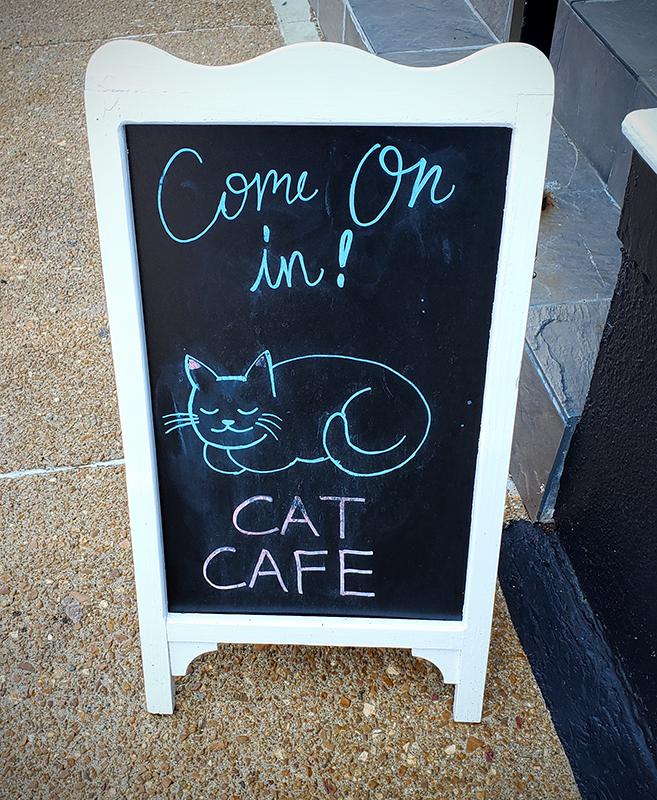 Come On
in!
CAT
CAFE